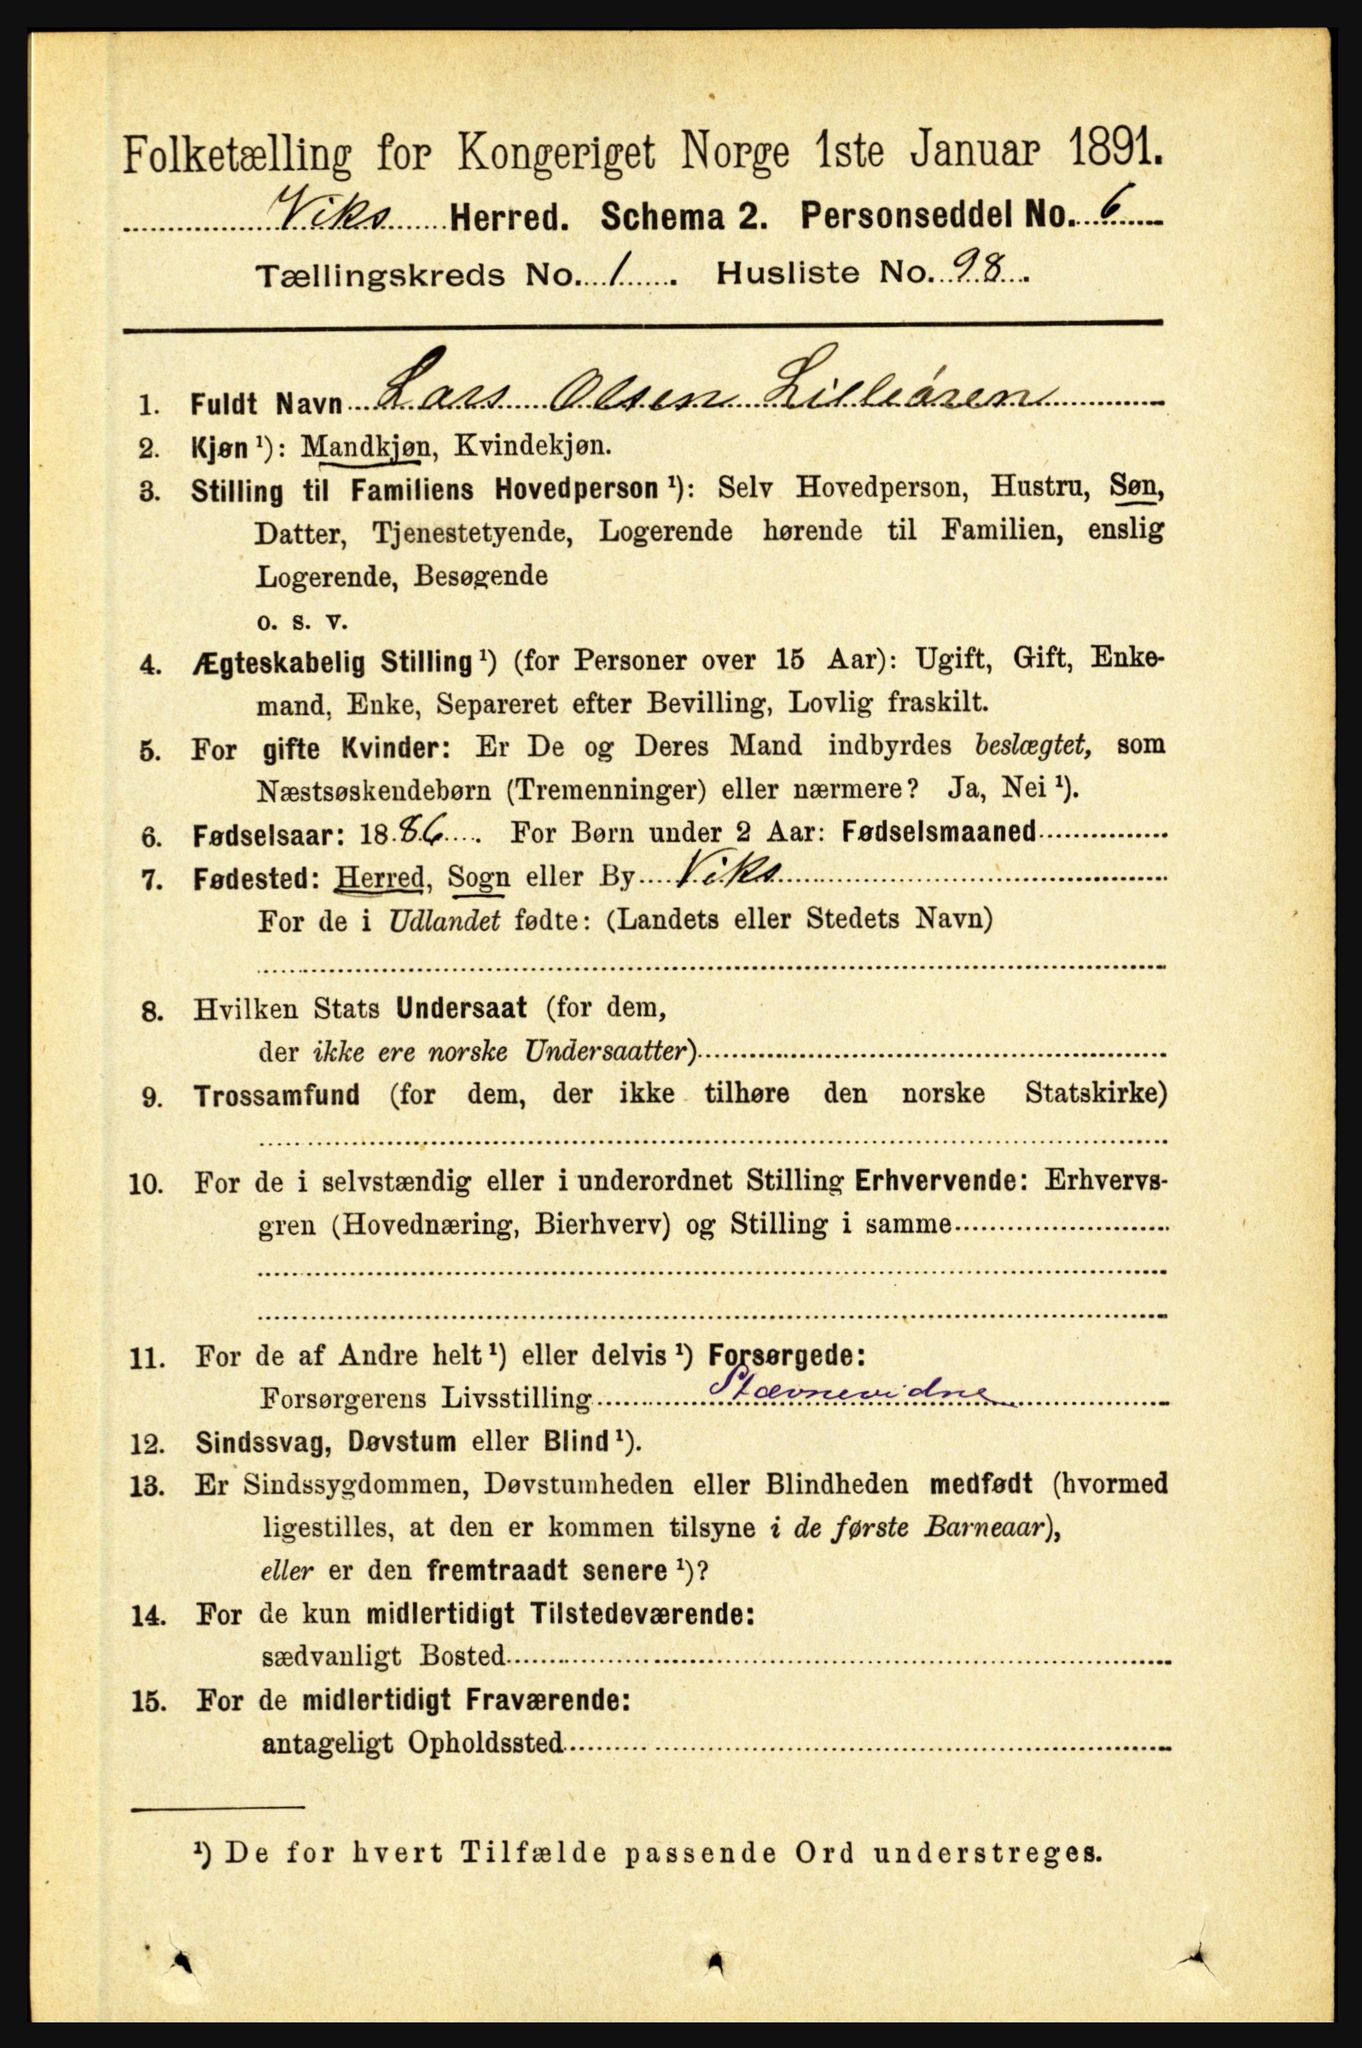 Folketælling for Kongeriget Norge 1ste Januar 1891.
Viks Herred. Schema 2. Personseddel No. 6
Tællingskreds No. 1. Husliste No. 98.
1. Fuldt Navn Lars Olsen Lilleören
2. Kjøn ¹): Mandkjøn, Kvindekjøn.
3. Stilling til Familiens Hovedperson ¹): Selv Hovedperson, Hustru, Søn,
Datter, Tjenestetyende, Logerende hørende til Familien, enslig
Logerende, Besøgende
o. s. v.
4. Ægteskabelig Stilling ¹) (for Personer over 15 Aar): Ugift, Gift, Enke-
mand, Enke, Separeret efter Bevilling, Lovlig fraskilt.
5. For gifte Kvinder: Er De og Deres Mand indbyrdes beslægtet, som
Næstsøskendebørn (Tremenninger) eller nærmere? Ja, Nei ¹).
6. Fødselsaar: 1886. For Børn under 2 Aar: Fødselsmaaned
7. Fødested: Herred, Sogn eller By Viks
For de i Udlandet fødte: (Landets eller Stedets Navn)
8. Hvilken Stats Undersaat (for dem,
der ikke ere norske Undersaatter)
9. Trossamfund (for dem, der ikke tilhøre den norske Statskirke)
10. For de i selvstændig eller i underordnet Stilling Erhvervende: Erhvervs-
gren (Hovednæring, Bierhverv) og Stilling i samme
11. For de af Andre helt ¹) eller delvis ¹) Forsørgede:
Forsørgerens Livsstilling Stævnevidne
12. Sindssvag, Døvstum eller Blind ¹).
13. Er Sindssygdommen, Døvstumheden eller Blindheden medfødt (hvormed
ligestilles, at den er kommen tilsyne i de første Barneaar),
eller er den fremtraadt senere ¹)?
14. For de kun midlertidigt Tilstedeværende:
sædvanligt Bosted
15. For de midlertidigt Fraværende:
antageligt Opholdssted
¹) De for hvert Tilfælde passende Ord understreges.